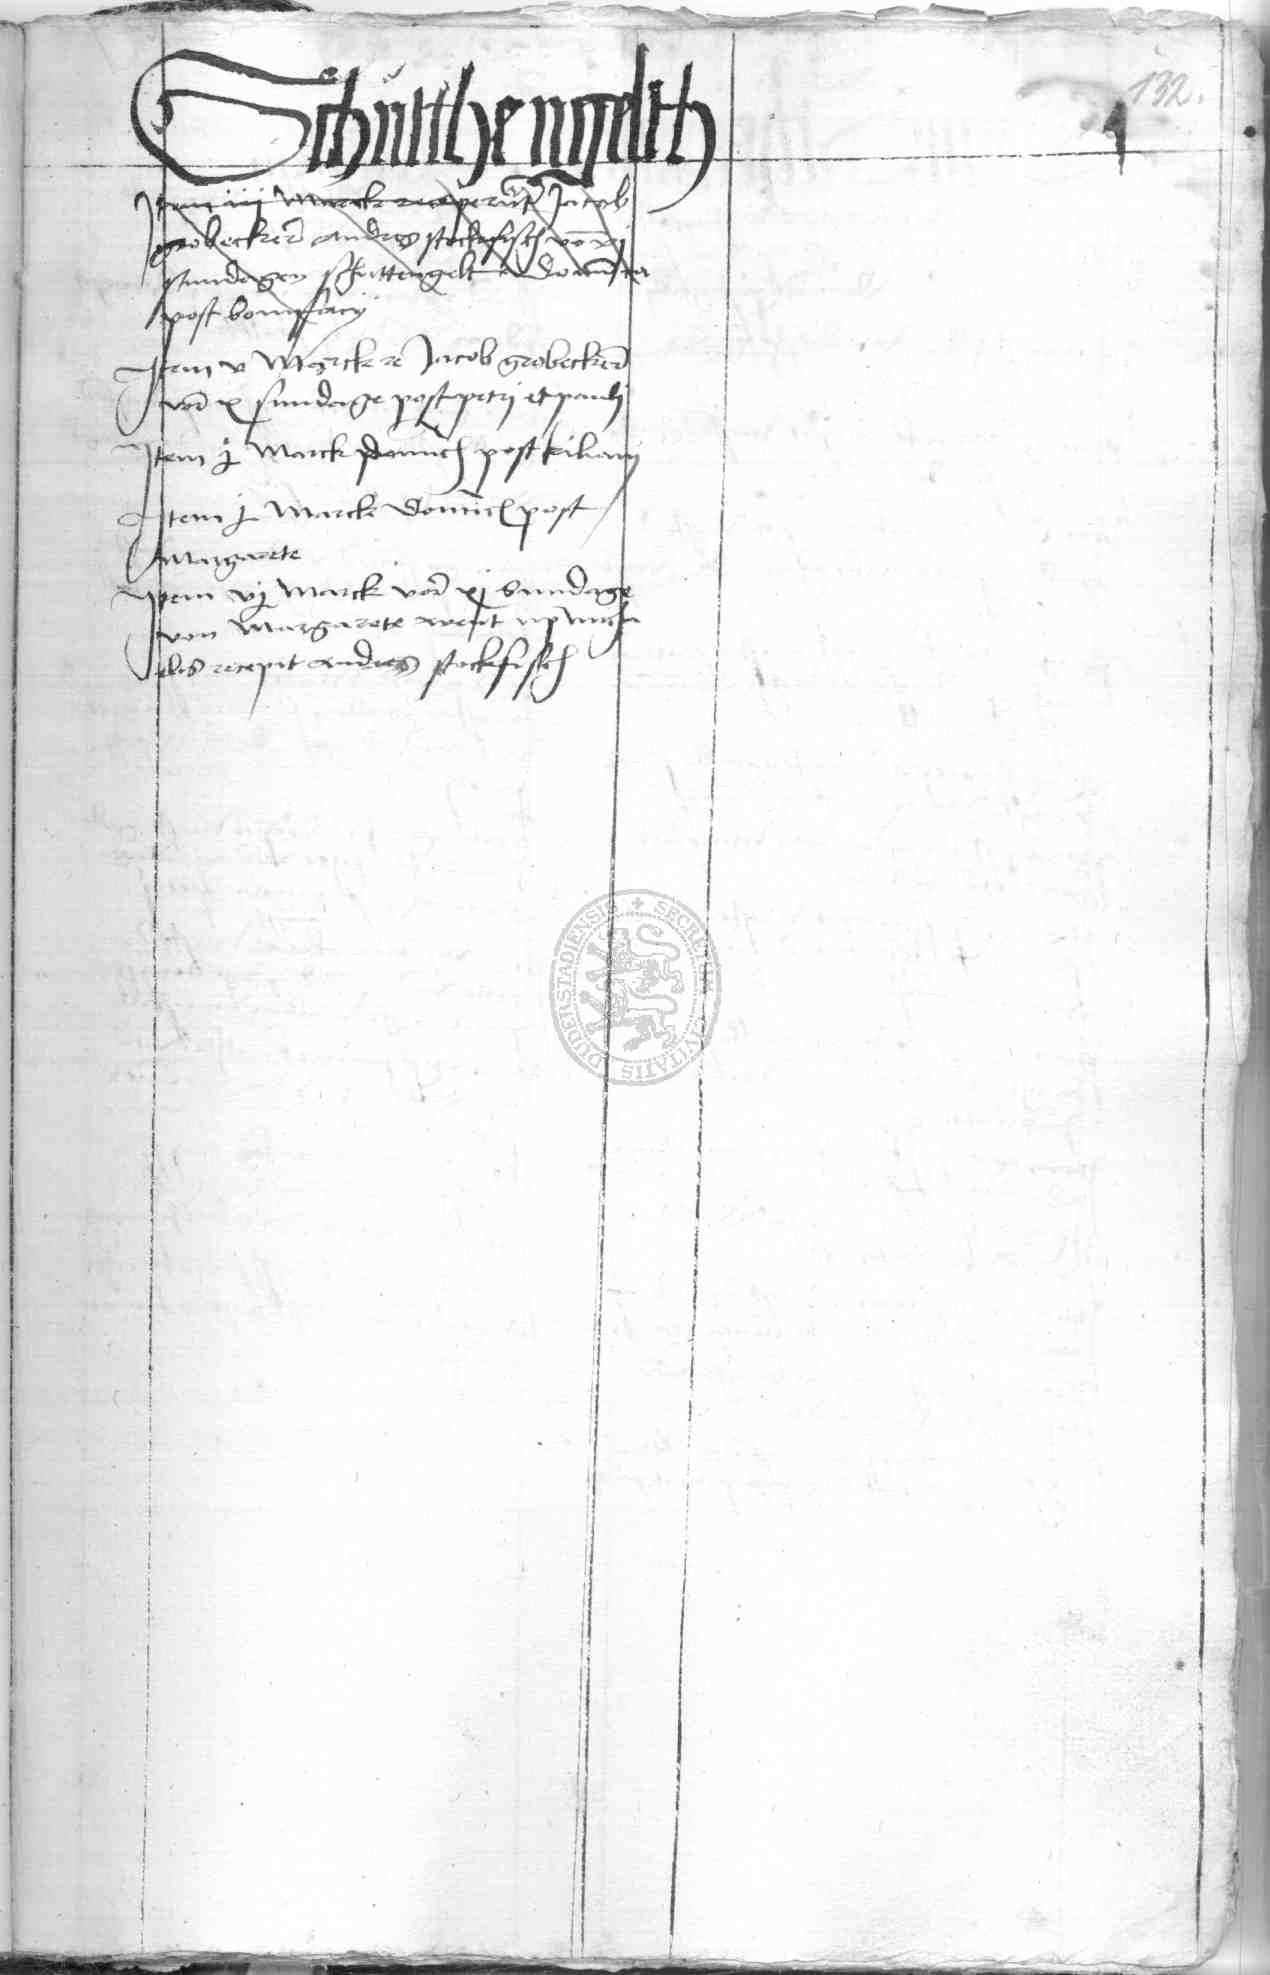 132.
Schutthengelth
Item iiij Marck receperūt Jacob
grobecker Andres stockfisch vō xj
sundagen schuttengelt a domīca
post bonifacij
Item v Marck re Jacob grobecker
vor x sundage post petri et pauli
Item j Marck domīc post kiliani
Item j Marck domīc post
Margarete
Item vj Marck vor xj sundage
von Margarete went up Micha
elis recepit Andres stockfisch
SECRETUM CIVITATIS DUDERSTADIENSIS